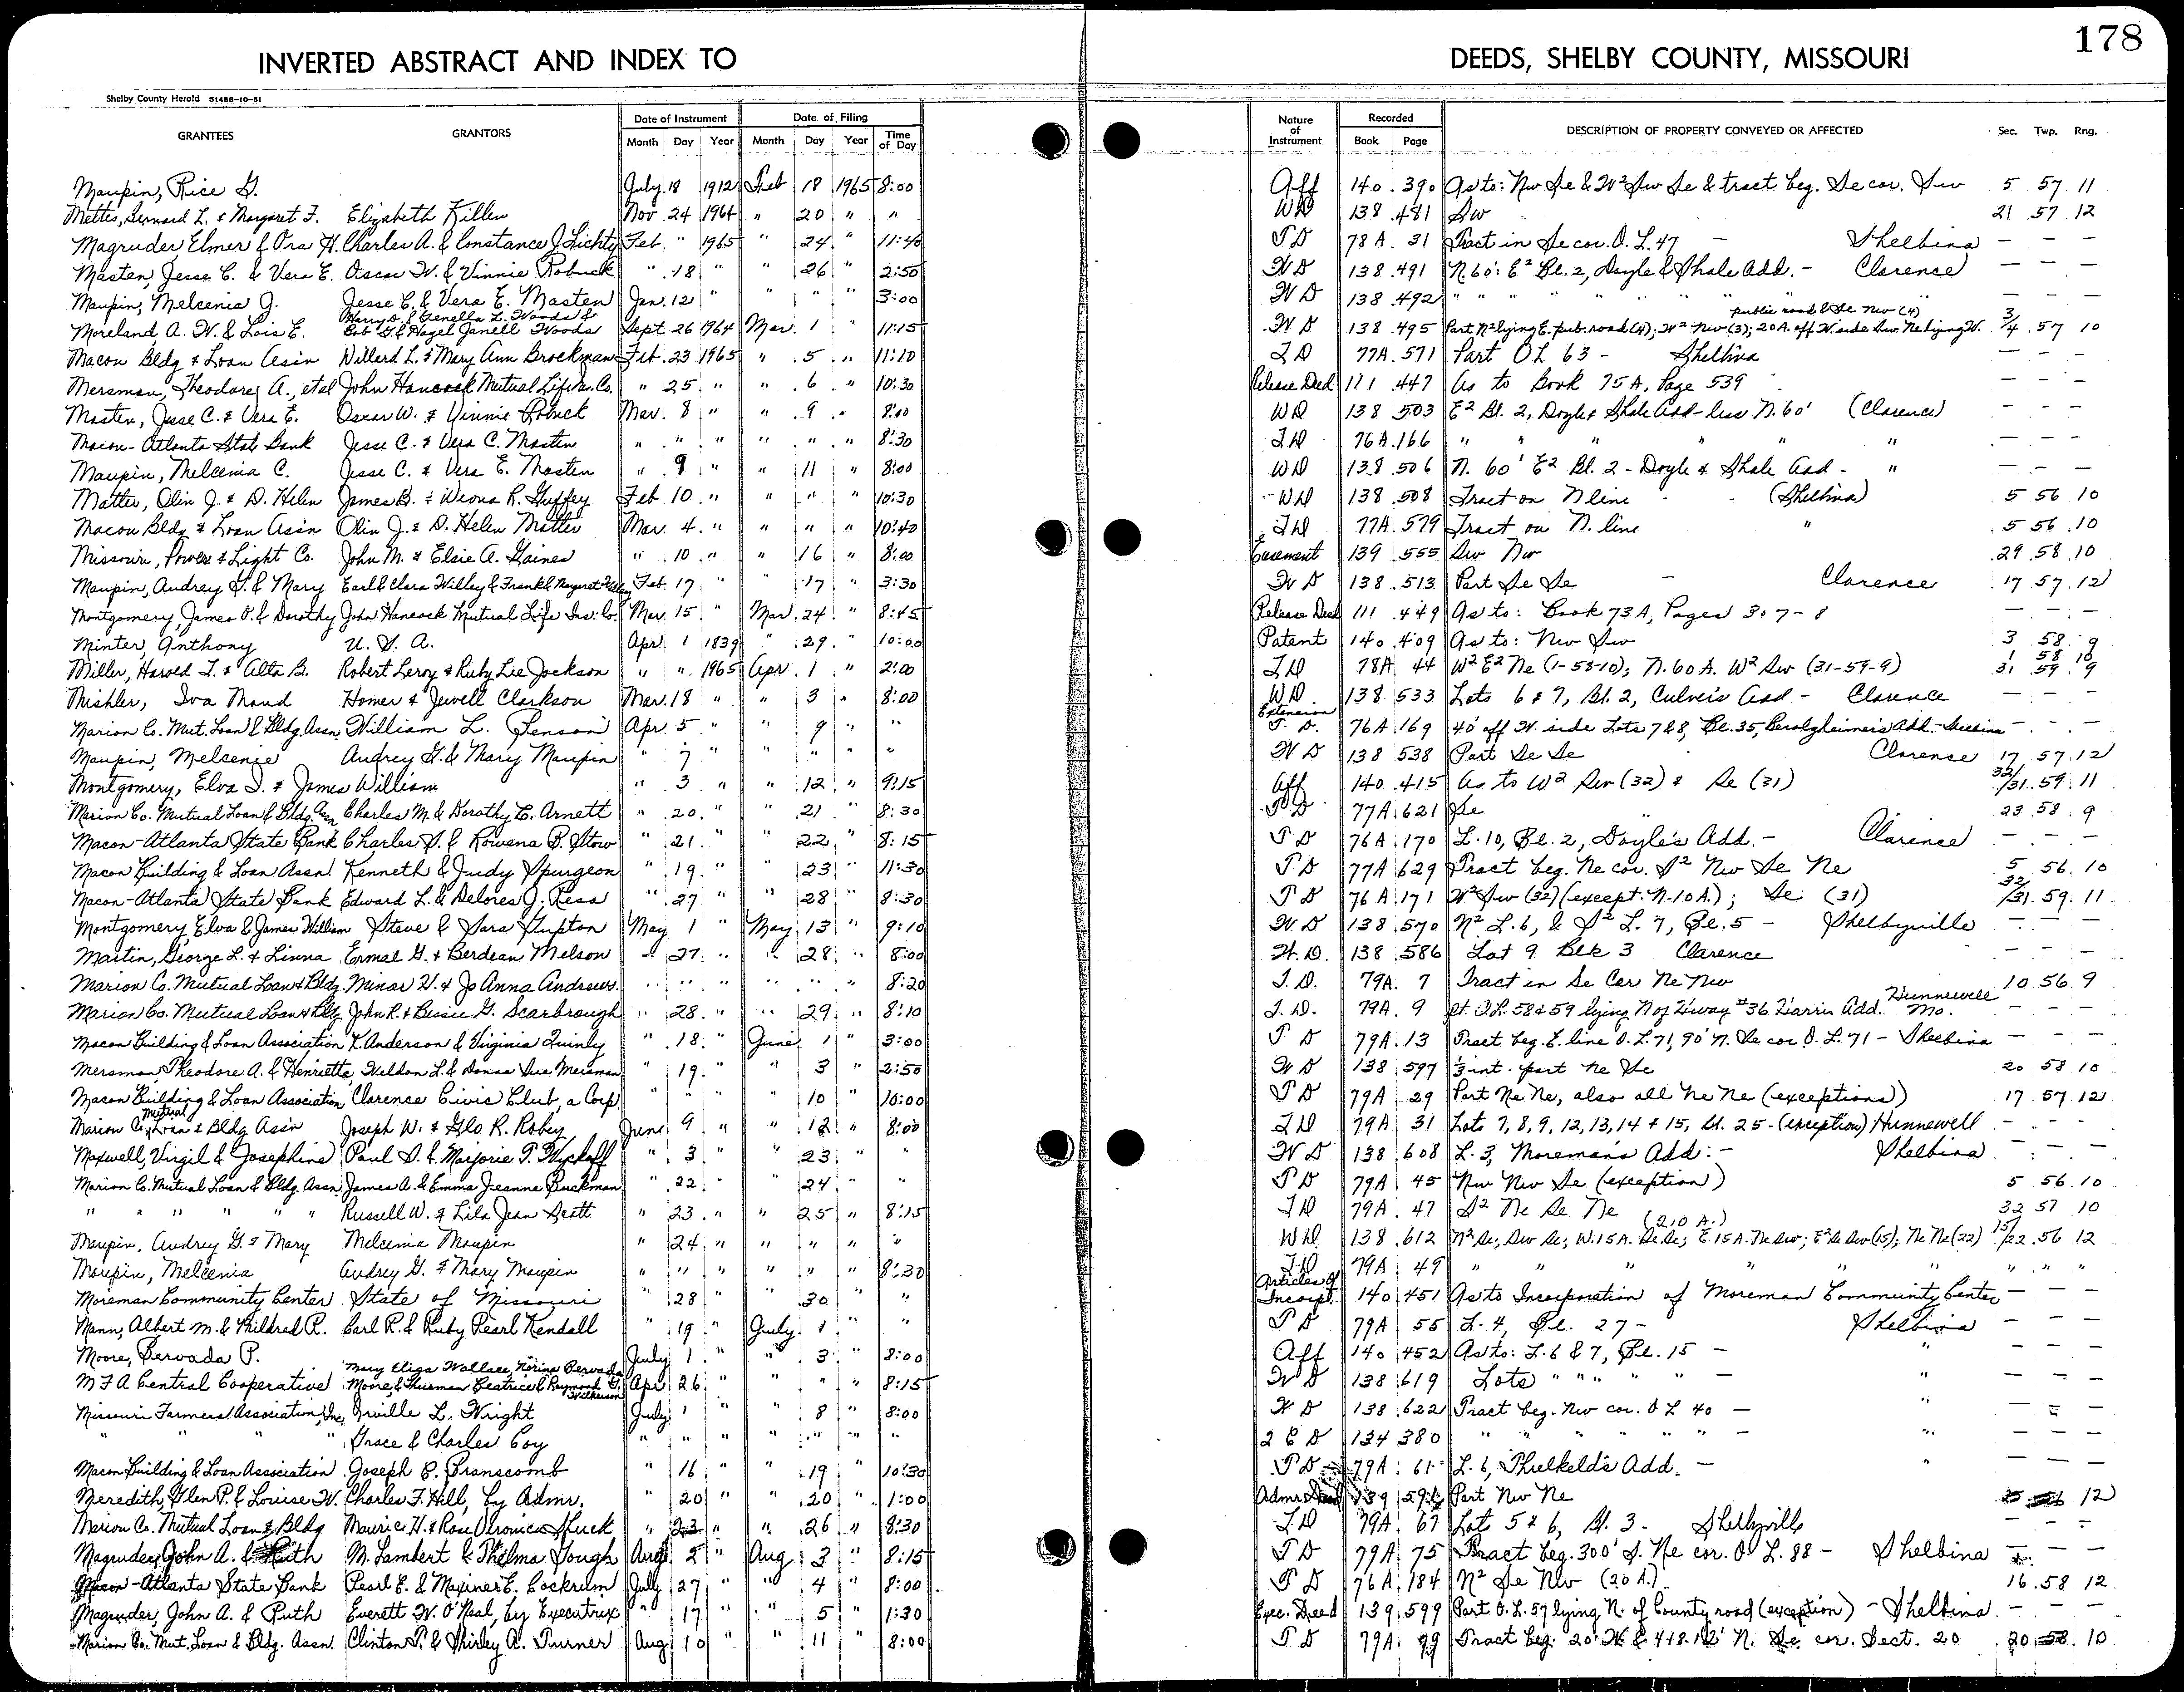 178
INVERTED ABSTRACT AND INDEX TO DEEDS, SHELBY COUNTY, MISSOURI
Shelby County Herald 51458-10-51
GRANTEES GRANTORS Date of Instrument Month Day Year Date of Filing Month Day Year Time of Day Nature of Instrument Recorded Book Page DESCRIPTION OF PROPERTY CONVEYED OR AFFECTED Sec. Twp. Rng.
Maupin, Rice G. July 18 1912 Feb 18 1965 8:00 Aff 140 390 As to: Nw Se & W² Sw Se & tract beg. Se cor. Sw 5 57 11
Mettes, Bernard L. & Margaret F. Elizabeth Killen Nov 24 1964 " 20 " " WD 138 481 Sw 21 57 12
Magruder Elmer & Ora H. Charles A. & Constance J. Lichty Feb " 1965 " 24 " 11:40 TD 78A 31 Tract in Se cor. O.L. 47 - Shelbina - - -
Masten, Jesse C. & Vera E. Oscar W. & Vinnie Robuck " 18 " " 26 " 2:50 WD 138 491 N. 60': E² Bl. 2, Doyle & Shale Add. - Clarence - - -
Maupin, Melcenia J. Jesse C. & Vera E. Masten Jan. 12 " " " " 3:00 WD 138 492 " " " " " " " - - -
Moreland, A. W. & Lois E. Harry D. & Genella L. Woods & Bob G. & Hazel Janell Woods Sept. 26 1964 Mar. 1 " 11:15 WD 138 495 Part N² lying E. pub. road (4); W² Nw (3); 20 A. off W. side Sw Ne lying W. public road & Se Nw (4) 3/4 57 10
Macon Bldg & Loan Ass'n Willard L. & Mary Ann Brockman Feb. 23 1965 " 5 " 11:10 TD 77A 571 Part OL 63 - Shelbina - - -
Mersman, Theodore A., etal John Hancock Mutual Life Ins. Co. " 25 " " 6 " 10:30 Release Deed 111 447 As to Book 75A, Page 539 - - -
Masten, Jesse C. & Vera E. Oscar W. & Vinnie Robuck Mar. 8 " " 9 " 8:00 WD 138 503 E² Bl. 2, Doyle & Shale Add - less N. 60' (Clarence) - - -
Macon-Atlanta State Bank Jesse C. & Vera C. Masten " " " " " " 8:30 TD 76A 166 " " " " " - - -
Maupin, Melcenia C. Jesse C. & Vera E. Masten " 9 " " 11 " 8:00 WD 138 506 N. 60' E² Bl. 2 - Doyle & Shale Add - " - - -
Matter, Olin J. & D. Helen James B. & Weona R. Guffey Feb. 10 " " " " 10:30 WD 138 508 Tract on N line (Shelbina) 5 56 10
Macon Bldg & Loan Ass'n Olin J. & D. Helen Matter Mar. 4 " " " " 10:40 TD 77A 579 Tract on N. line " 5 56 10
Missouri, Power & Light Co. John M. & Elsie A. Gaines " 10 " " 16 " 8:00 Easement 139 555 Sw Nw 29 58 10
Maupin, Audrey G. & Mary Earl & Clara Willey & Frank & Margaret Willey Feb. 17 " " 17 " 3:30 WD 138 513 Part Se Se - Clarence 17 57 12
Montgomery, James O. & Dorothy John Hancock Mutual Life Ins. Co. Mar. 15 " Mar. 24 " 8:45 Release Deed 111 449 As to: Book 73A, Pages 307-8 - - -
Minter, Anthony U. S. A. Apr. 1 1839 " 29 " 10:00 Patent 140 409 As to: Nw Sw 3 58 9
Miller, Harold T. & Alta B. Robert Leroy & Ruby Lee Jackson " " 1965 Apr. 1 " 2:00 TD 78A 44 W² E² Ne (1-58-10); N. 60 A. W² Sw (31-59-9) 1 58 10 31 59 9
Mishler, Iva Maud Homer & Jewell Clarkson Mar. 18 " " 3 " 8:00 WD 138 533 Lots 6 & 7, Bl. 2, Culver's Add - Clarence - - -
Marion Co. Mut. Loan & Bldg. Assn. William L. Benson Apr. 5 " " 9 " " Extension T. D. 76A 169 40' off W. side Lots 7 & 8, Bl. 35, Berolzheimer's Add. - Shelbina - - -
Maupin, Melcenie Audrey G. & Mary Maupin " 7 " " " " " WD 138 538 Part Se Se Clarence 17 57 12
Montgomery, Elva I. & James William " 3 " " 12 " 9:15 Aff 140 415 As to W² Sw (32) & Se (31) 32/31 59 11
Marion Co. Mutual Loan & Bldg. Assn Charles M. & Dorothy E. Arnett " 20 " " 21 " 8:30 TD 77A 621 Se 23 58 9
Macon-Atlanta State Bank Charles S. & Rowena B. Stow " 21 " " 22 " 8:15 TD 76A 170 L. 10, Bl. 2, Doyle's Add. - Clarence - - -
Macon Building & Loan Assn Kenneth & Judy Spurgeon " 19 " " 23 " 11:30 TD 77A 629 Tract beg. Ne cor. S² Nw Se Ne 5 56 10
Macon-Atlanta State Bank Edward L. & Delores J. Resa " 27 " " 28 " 8:30 TD 76A 171 W² Sw (32) (except: N. 10 A.); Se (31) 32/31 59 11
Montgomery, Elva & James William Steve & Sara Gupton May 1 " May 13 " 9:10 WD 138 570 N² L. 6, & S² L. 7, Bl. 5 - Shelbyville - - -
Martin, George L. & Linna Ermal G. & Berdean Melson " 27 " " 28 " 8:00 W.D. 138 586 Lot 9 Blk 3 Clarence - - -
Marion Co. Mutual Loan & Bldg. Minor H. & Jo Anna Andrews " " " " " " 8:20 T.D. 79A 7 Tract in Se Cor Ne Nw 10 56 9
Marion Co. Mutual Loan & Bldg John R. & Bessie G. Scarbrough " 28 " " 29 " 8:10 T.D. 79A 9 pt. O.L. 58 & 59 lying N of Hiway #36 Harris Add. Hunnewell Mo. - - -
Macon Building & Loan Association K. Anderson & Virginia Quinly " 18 " June 1 " 3:00 TD 79A 13 Tract beg. E. line O.L. 71, 90' N. Se cor O.L. 71 - Shelbina - - -
Mersman, Theodore A. & Henrietta Weldon L. & Donna Sue Mersman " 19 " " 3 " 2:50 WD 138 597 ⅓ int. part Ne Se 20 58 10
Macon Building & Loan Association Clarence Civic Club, a Corp. " " " " 10 " 10:00 TD 79A 29 Part Ne Ne, also all Ne Ne (exceptions) 17 57 12
Marion Co. Mutual Loan & Bldg Ass'n Joseph W. & Glo R. Robey June 9 " " 12 " 8:00 TD 79A 31 Lots 7, 8, 9, 12, 13, 14 & 15, Bl. 25 - (exception) Hunnewell - - -
Maxwell, Virgil & Josephine Paul D. & Marjorie P. Wyckoff " 3 " " 23 " " WD 138 608 L. 3, Moreman's Add: - Shelbina - - -
Marion Co. Mutual Loan & Bldg. Assn James A. & Emma Jeanne Buckman " 22 " " 24 " " TD 79A 45 Nw Nw Se (exception) 5 56 10
" " " " " " Russell W. & Lila Jean Scott " 23 " " 25 " 8:15 TD 79A 47 S² Ne Se Ne 32 57 10
Maupin, Audrey G. & Mary Melcenia Maupin " 24 " " " " " WD 138 612 N² Se; Sw Se; W. 15 A. Se Se; E. 15 A. Ne Sw; E² Se Sw (15); Ne Ne (22) (210 A.) 15/22 56 12
Maupin, Melcenia Audrey G. & Mary Maupin " " " " " " 8:30 TD 79A 49 " " " " " " " "
Moreman Community Center State of Missouri " 28 " " 30 " " Articles of Incorpt. 140 451 As to Incorporation of Moreman Community Center - - -
Mann, Albert M. & Mildred R. Carl R. & Ruby Pearl Kendall " 19 " July 1 " " TD 79A 55 L. 4, Bl. 27 - Shelbina - - -
Moore, Bervada P. July 1 " " 3 " 8:00 Aff 140 452 As to: L. 6 & 7, Bl. 15 - " - - -
MFA Central Cooperative Mary Eliza Wallace, Norina Bervada Moore, & Thurman Beatrice & Raymond G. Wilkerson Apr. 26 " " " " 8:15 WD 138 619 Lots " " " " " - " - - -
Missouri Farmers Association, Inc. Orville L. Wright July 1 " " 8 " 8:00 WD 138 622 Tract beg. Nw cor. OL 40 - " - - -
" " " " Grace & Charles Coy " " " " " " " 2 E D 134 380 " " " " " " - " - - -
Macon Building & Loan Association Joseph C. Branscomb " 16 " " 19 " 10:30 TD 79A 61 L. 6, Threlkeld's Add. - " - - -
Meredith, Glen P. & Louise W. Charles F. Hill, by Admr. " 20 " " 20 " 1:00 Admr Deed 139 596 Part Nw Ne 12
Marion Co. Mutual Loan & Bldg Maurice H. & Rose Veronica Shuck " 23 " " 26 " 8:30 TD 79A 67 Lot 5 & 6, Bl. 3 - Shelbyville - - -
Magruder, John A. & Ruth M. Lambert & Thelma Gough Aug 2 " Aug 3 " 8:15 TD 79A 75 Tract beg. 300' S. Ne cor. O. L. 88 - Shelbina - - -
Macon-Atlanta State Bank Pearl E. & Maxine E. Cockrum July 27 " " 4 " 8:00 TD 76A 184 N² Se Nw (20 A.) 16 58 12
Magruder, John A. & Ruth Everett W. O'Neal, by Executrix " 17 " " 5 " 1:30 Exec. Deed 139 599 Part O.L. 57 lying N. of County road (exception) - Shelbina - - -
Marion Co. Mut. Loan & Bldg. Assn. Clinton P. & Shirley A. Turner Aug 10 " " 11 " 8:00 TD 79A 79 Tract beg. 20' W. & 418.12' N. Se. cor. Sect. 20 20 58 10